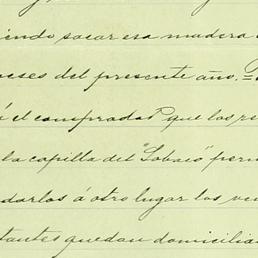 iendo sacar esa madera
meses del presente año.=
á el comprador que los re
la capilla del "Lobaio" perm
darlos á otro lugar los ve
tantes quedan domicilia